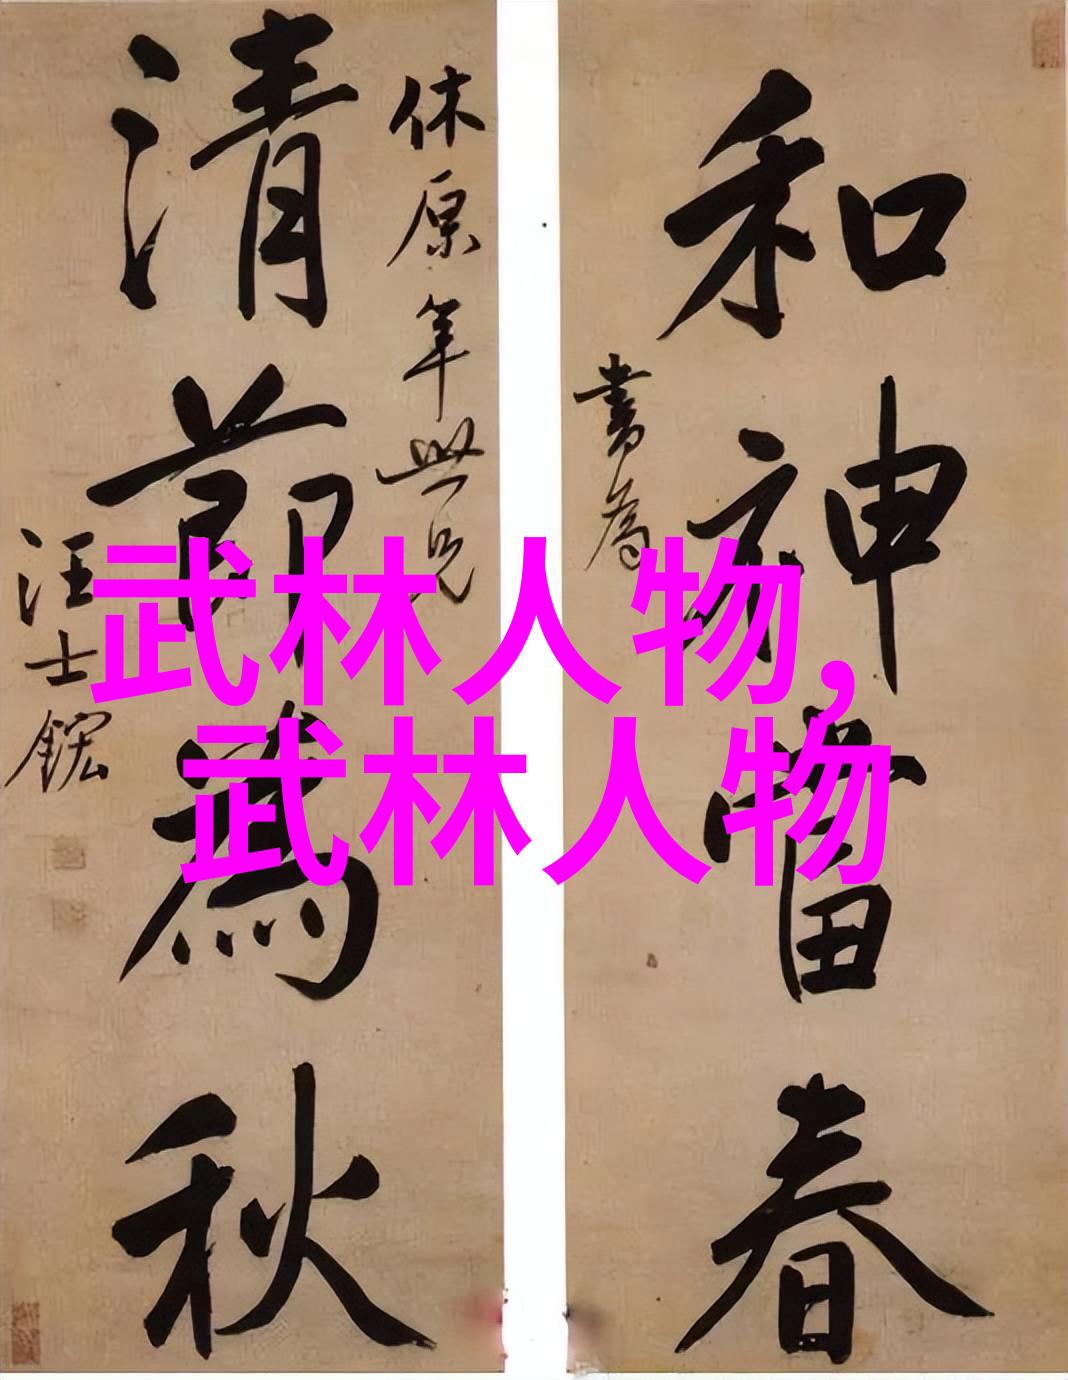 和神當春
書為
休原年世兄
清節為秋
汪士鋐
武林人物,
武林人物